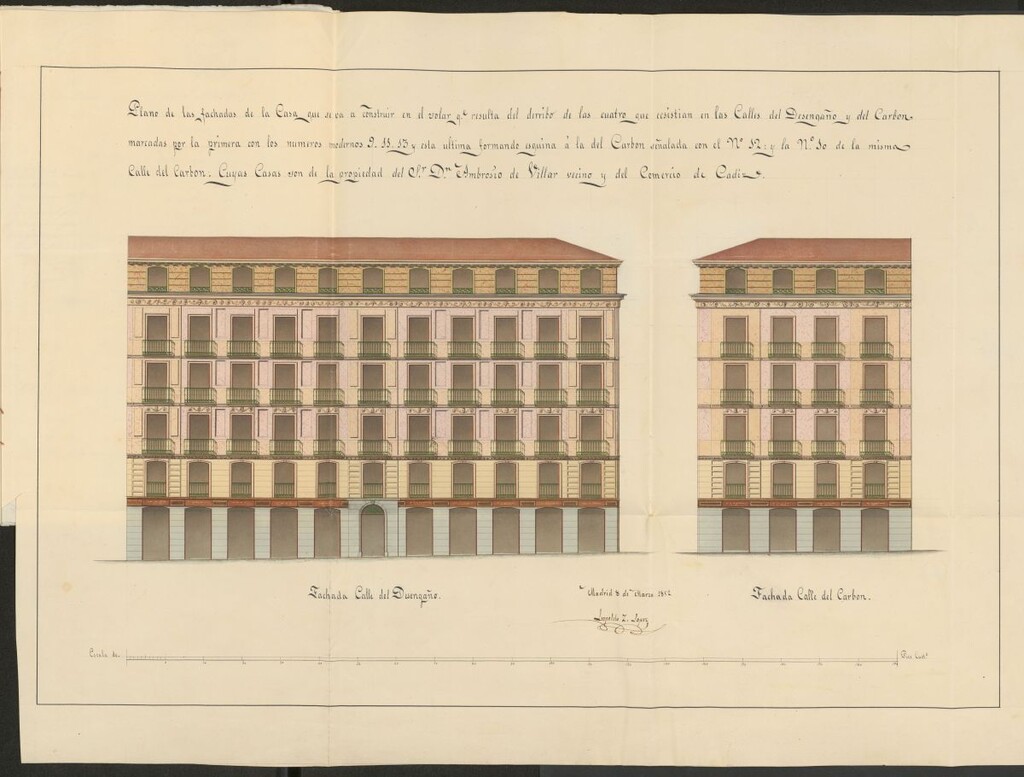 Plano de las fachadas de la Casa que se va a Construir en el solar q.e resulta del derribo de las cuatro que ecsistian en las Calles del Desengaño y del Carbon
marcadas por la primera con los numeros modernos 9. 11. 13 y esta ultima formando esquina á la del Carbon señalada con el Nº 12: y la N.º 10 de la misma
Calle del Carbon. Cuyas Casas son de la propiedad del S.r D.n Ambrosio de Villar vecino y del Comercio de Cadiz.
Fachada Calle del Desengaño.
Madrid 8 de Marzo
Fachada Calle del Carbon.
Escala de
Pies